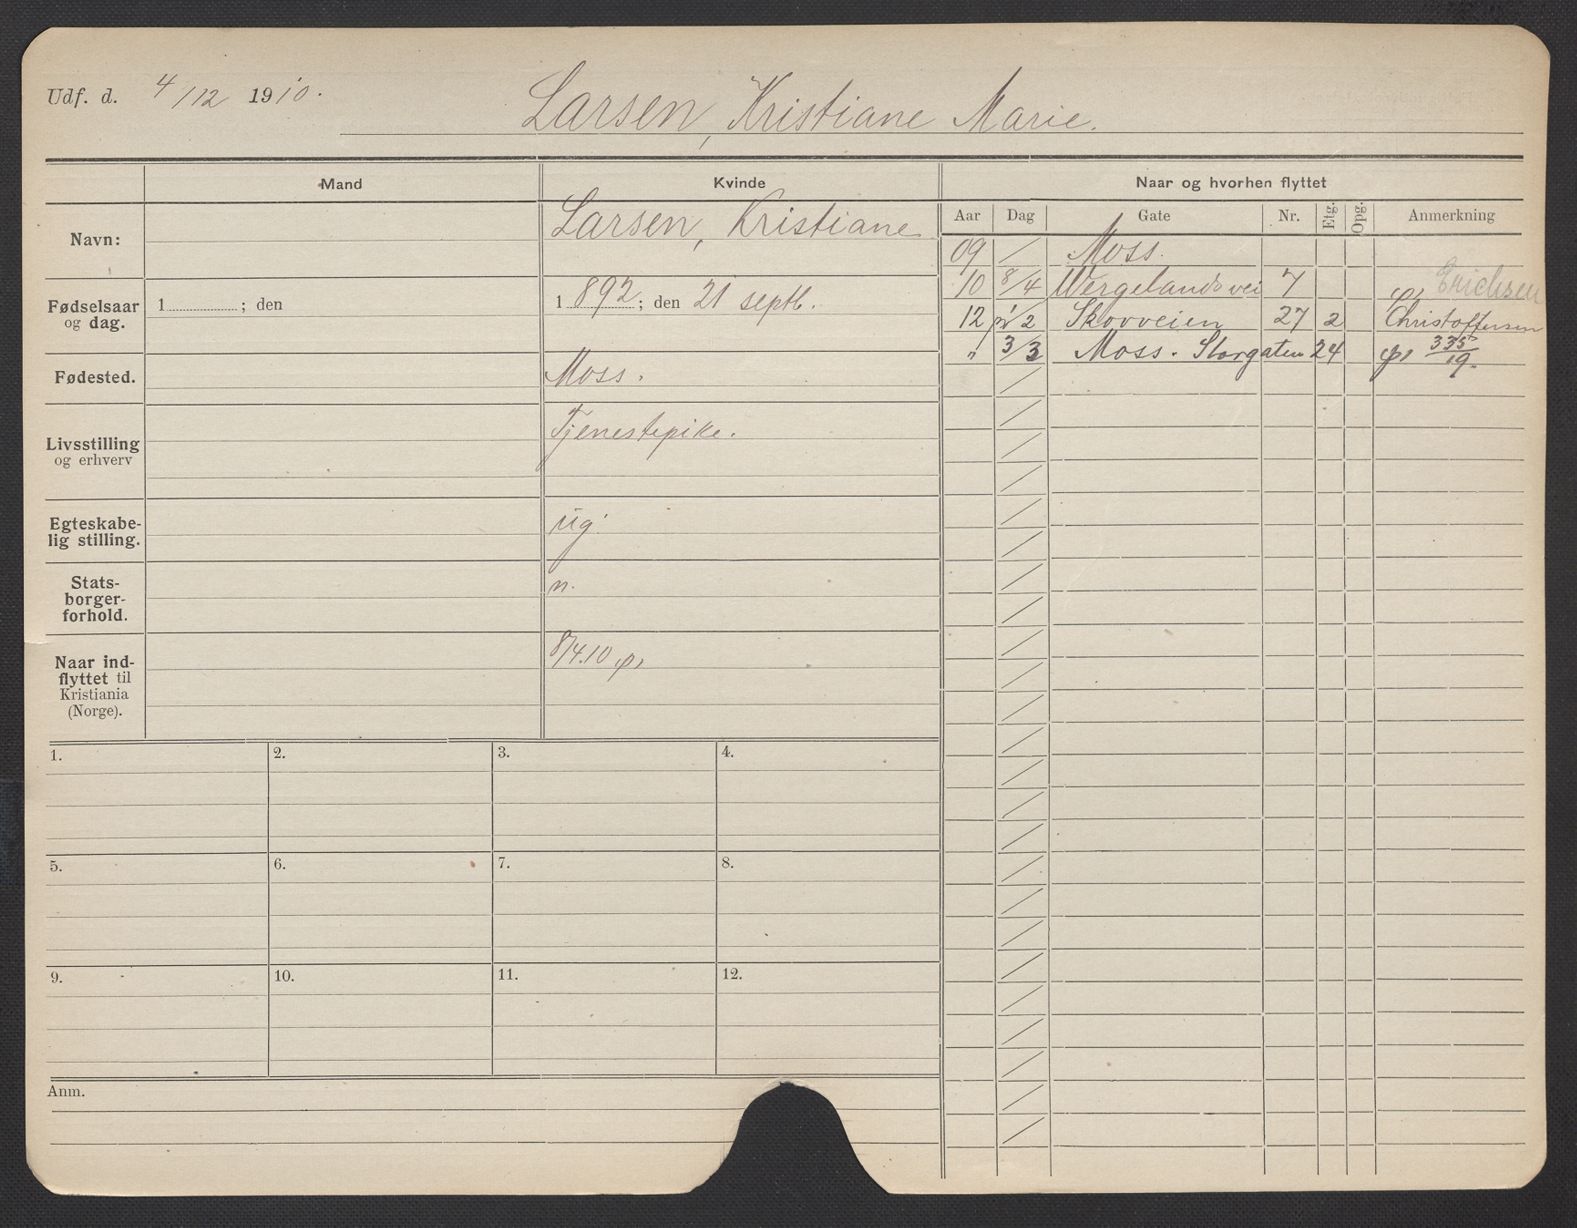 Udf. d. 4/12 1910.
Larsen, Kristiane Marie.
Mand
Kvinde
Naar og hvorhen flyttet
Aar Dag Gate Nr. Etg. Opg. Anmerkning
Navn:
Larsen, Kristiane
Fødselsaar og dag.
1 ; den
1892; den 21 septb.
Fødested.
Moss.
Livsstilling og erhverv
Tjenestepike.
Egteskabe-
lig stilling.
ug.
Stats-
borger-
forhold.
n.
Naar ind-
flyttet til
Kristiania
(Norge).
8/4.10
09 / Moss.
10 8/4 Wergelandsvei 7 Erichsen
12 1/2 Skovveien 27 2 Christoffersen
" 3/3 Moss. Storgaten 24 335/19.
1. 2. 3. 4.
5. 6. 7. 8.
9. 10. 11. 12.
Anm.